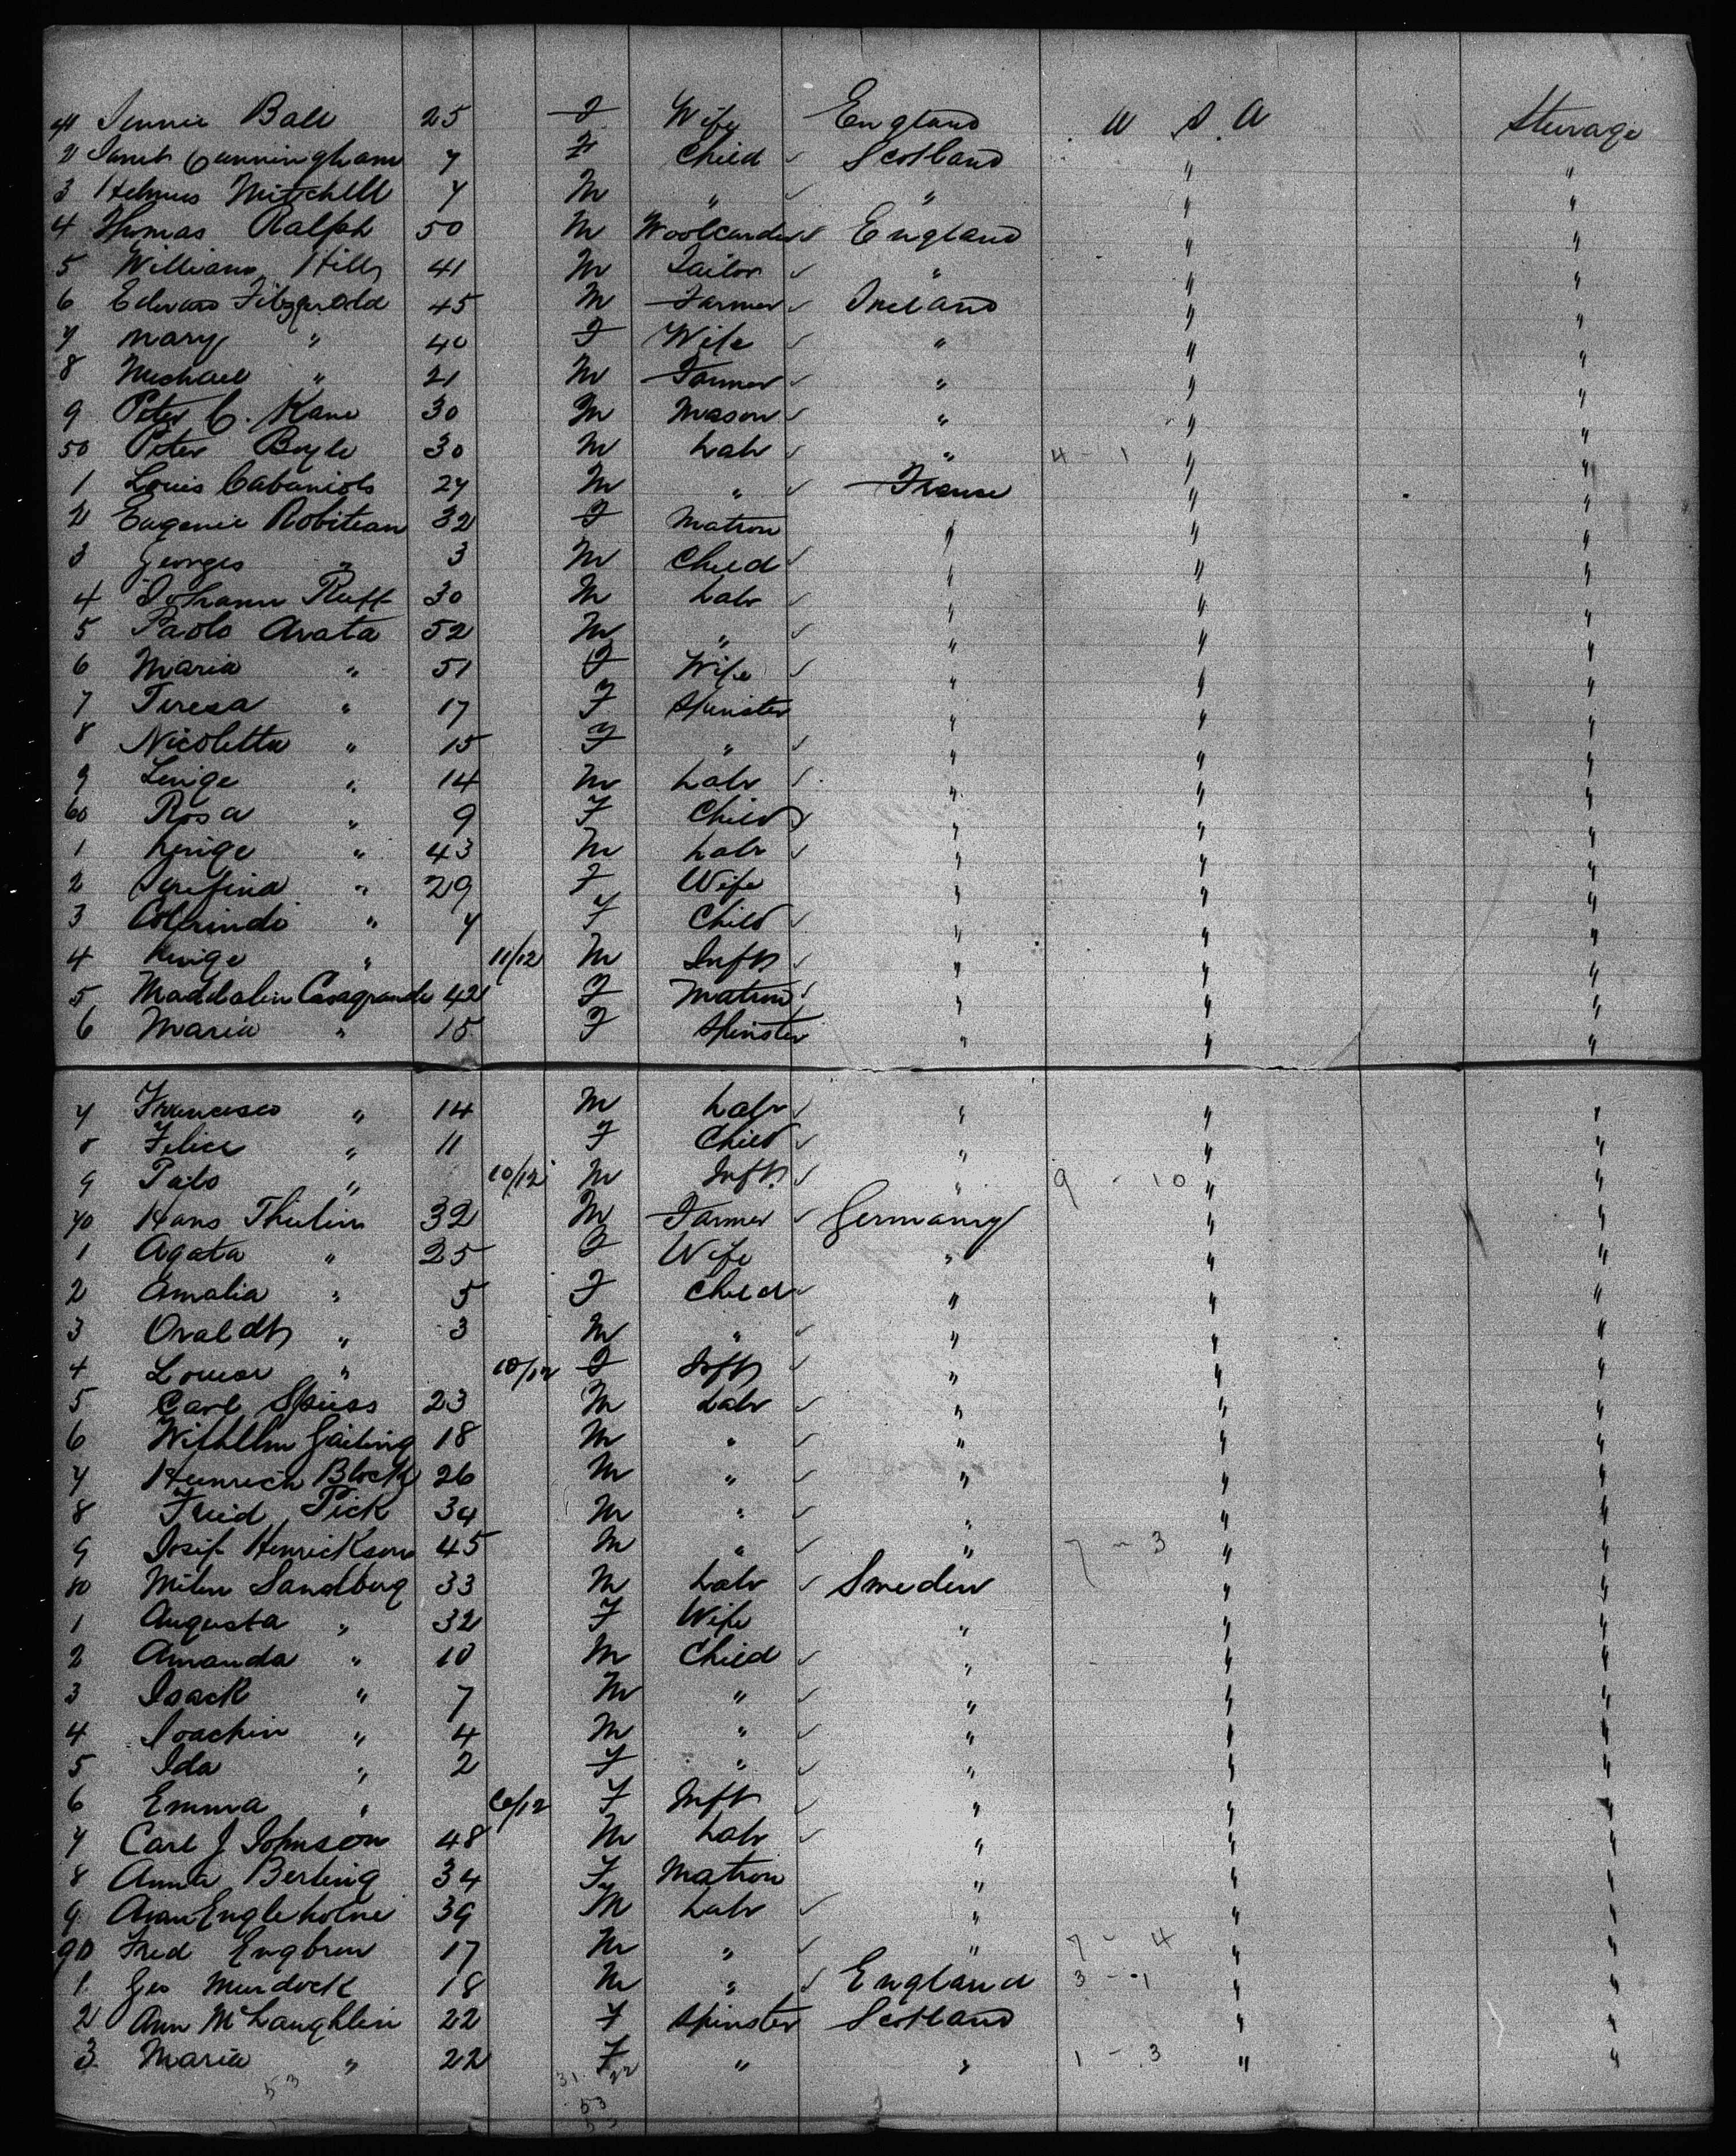 41 Jennie Ball 25 F Wife England U S A Steerage
2 Janet Cunningham 7 F Child ✓ Scotland " "
3 Mitchell 7 M " ✓ " " "
4 Thomas Ralph 50 M Woolcarder ✓ England " "
5 William Hill 41 M Tailor ✓ " " "
6 Edward Fitzgerald 45 M Farmer ✓ Ireland " "
7 Mary " 40 F Wife ✓ " " "
8 Michael " 21 M Farmer ✓ " " "
9 Peter C. Kane 30 M Mason ✓ " " "
50 Peter Boyle 30 M Labr ✓ " 4 - 1 " "
1 Louis Cabaniols 27 M " ✓ France " "
2 Eugenie Robiteau 32 F Matron " " "
3 Georges " 3 M Child ✓ " " "
4 Johann Ruff 30 M Labr ✓ " " "
5 Paolo Arata 52 M " ✓ " " "
6 Maria " 51 F Wife ✓ " " "
7 Teresa " 17 F Spinster " " "
8 Nicoletta " 15 F " ✓ " " "
9 Luige " 14 M Labr ✓ " " "
60 Rosa " 9 F Child ✓ " " "
1 Luige " 43 M Labr ✓ " " "
2 Serefina " 29 F Wife " " "
3 " 7 F Child ✓ " " "
4 Luige " 11/12 M Inft ✓ " " "
5 Maddalin Casagrande 42 F Matron ✓ " " "
6 Maria " 15 F Spinster " " "
7 Francesco " 14 M Labr ✓ " " "
8 Felice " 11 F Child ✓ " " "
9 Palo " 10/12 M Inft ✓ " 9 - 10 " "
70 Hans Thulin 32 M Farmer ✓ Germany " "
1 Agata " 25 F Wife " " "
2 Amalia " 5 F Child ✓ " " "
3 Ovaldt " 3 M " ✓ " " "
4 " 10/12 F Inft ✓ " " "
5 Carl Spiess 23 M Labr ✓ " " "
6 Wilhelm Gailing 18 M " ✓ " " "
7 Heinrich Block 26 M " ✓ " " "
8 Fried Pick 34 M " ✓ " " "
9 Josif Henrickson 45 M " ✓ " 7 - 3 " "
80 Sandberg 33 M Labr ✓ Sweden " "
1 Augusta " 32 F Wife " " "
2 Amanda " 10 M Child ✓ " " "
3 Isack " 7 M " ✓ " " "
4 Joachin " 4 M " ✓ " " "
5 Ida " 2 F " ✓ " " "
6 Emma " 10/12 F Inft ✓ " " "
7 Carl J Johnson 48 M Labr ✓ " " "
8 Anna Berling 34 F Matron " " "
9 Engleholme 39 M Labr ✓ " " "
90 Fred Engbren 17 M " ✓ " 7 - 4 " "
1 Geo Murdock 18 M " ✓ England 3 - 1 " "
2 Ann McLaughlin 22 F Spinster Scotland " "
3 Maria " 22 F " " 1 - 3 " "
53 31 22
53